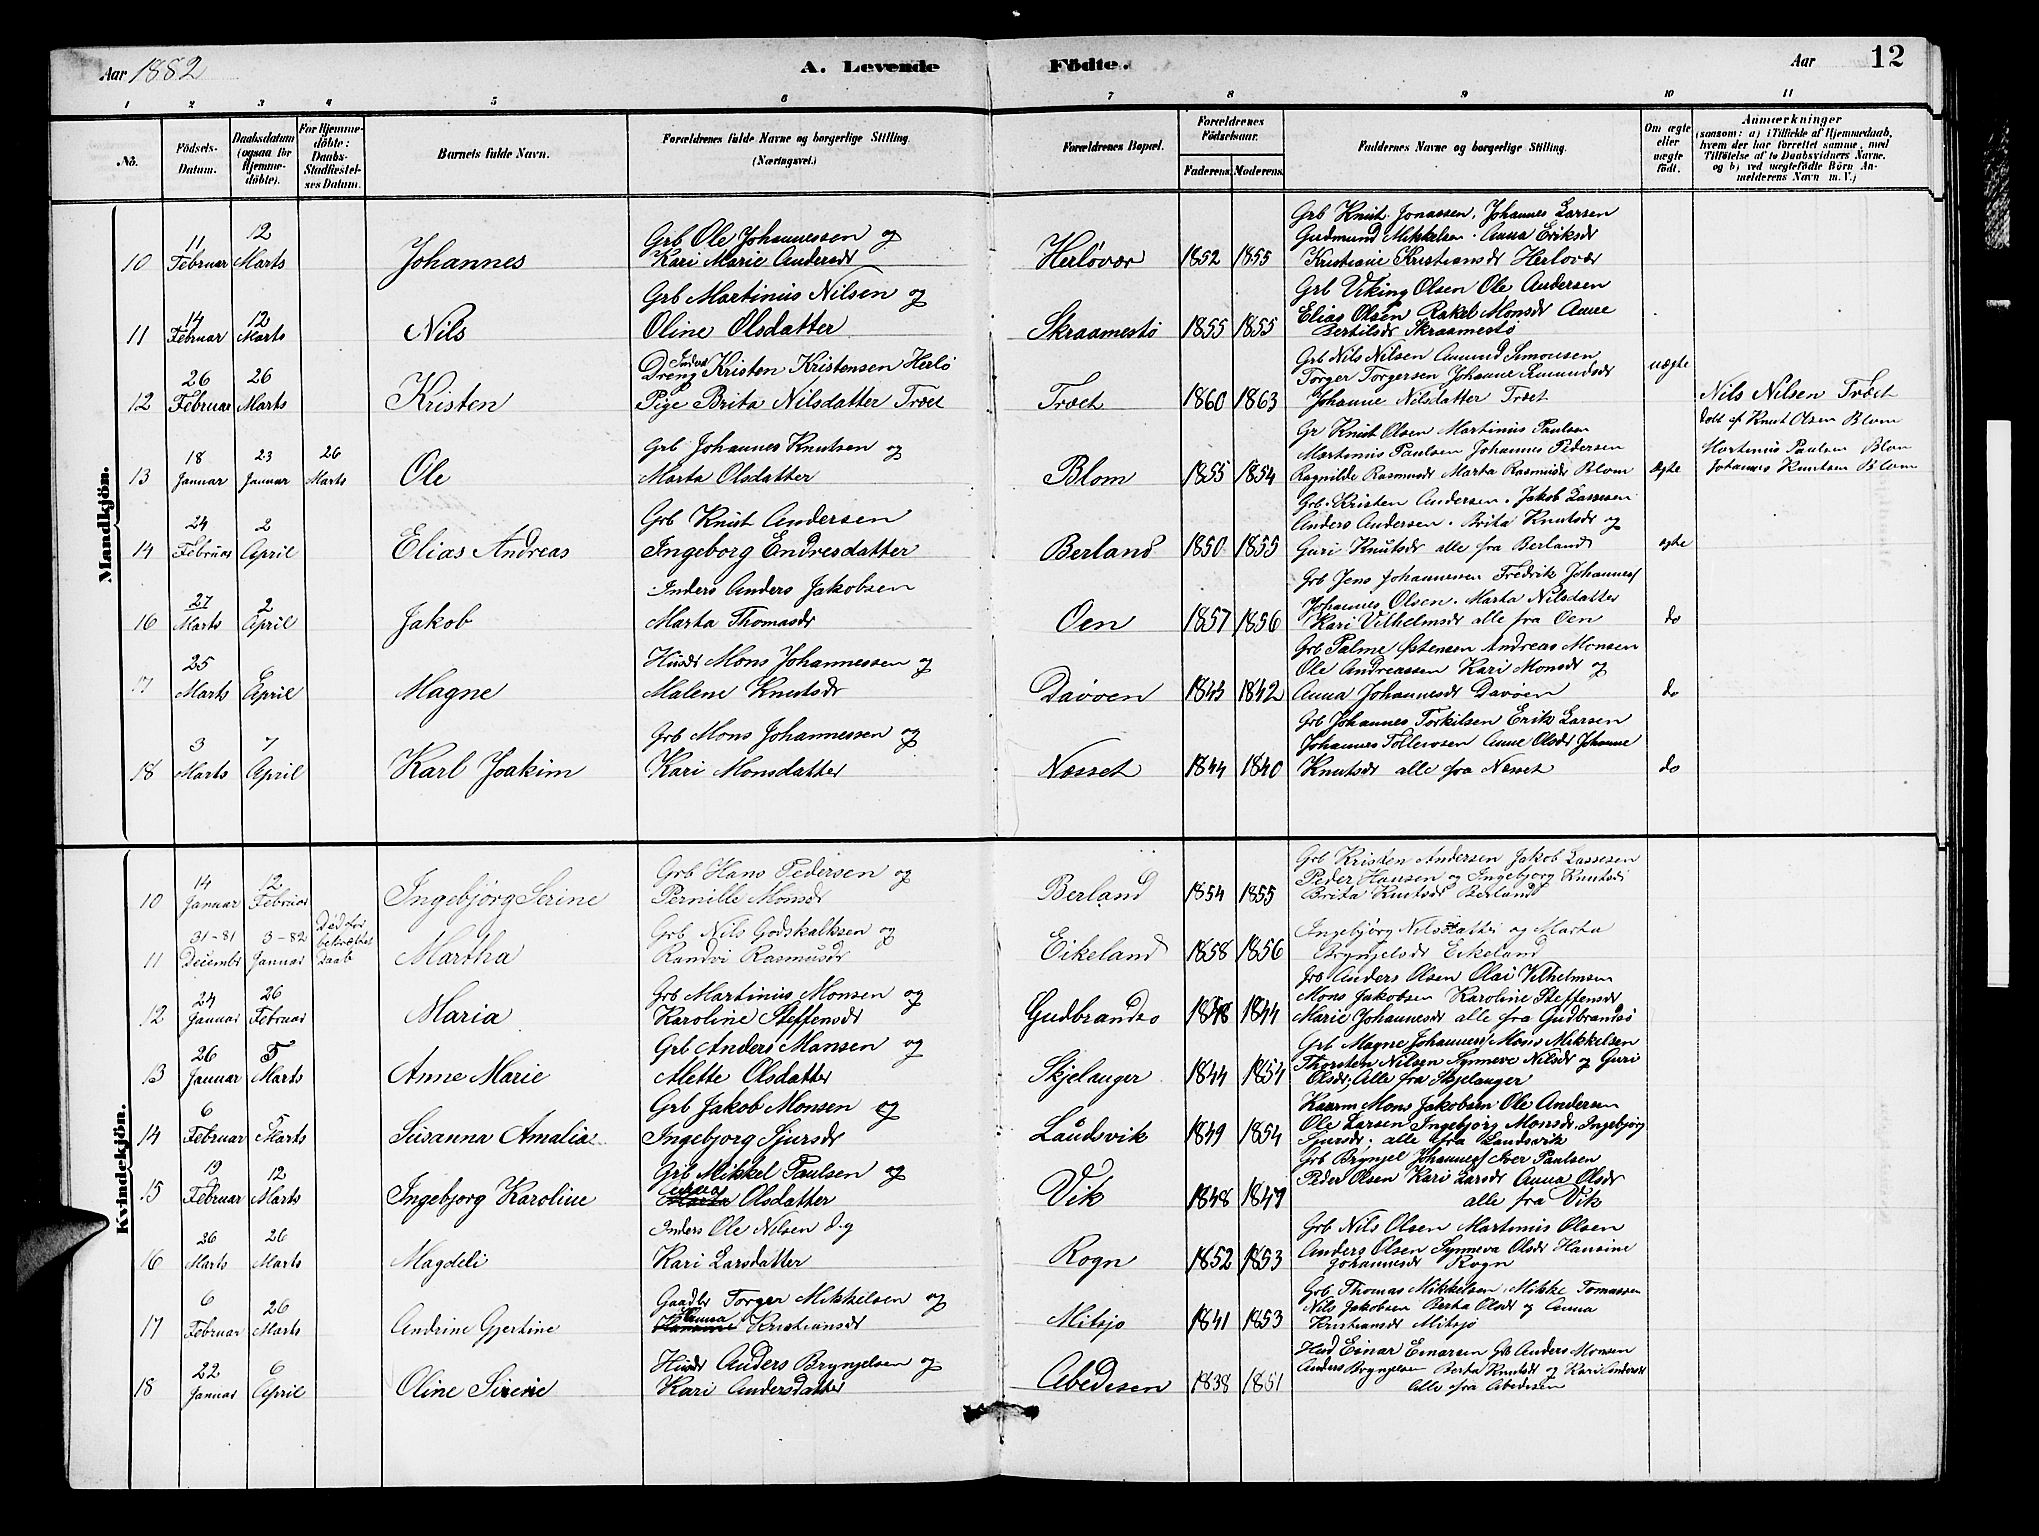 Aar 1882
A. Levende Födte.
Aar 12
1 2 3 4 5 6 7 8 9 10 11
No.
Födsels-Datum.
Daabsdatum (ogsaa for Hjemme-döbte).
For Hjemme-döbte: Daabs-Stadfæstel-ses Datum.
Barnets fulde Navn.
Forældrenes fulde Navne og borgerlige Stilling. (Næringsvei.)
Forældrenes Bopæl.
Forældrenes Födselsaar.
Faderens. Moderens.
Faddernes Navne og borgerlige Stilling.
Om ægte eller uægte födt.
Anmærkninger
(saasom: a) i Tilfælde af Hjemmedaab, hvem der har forrettet samme, med Tilföielse af to Daabsvidners Navne, og b) ved uægtefödte Börn An-melderens Navn m. V.)
Mandkjön.
10 11 Februar 12 Marts Johannes Grb Ole Johannessen og Kari Marie Andersdr Herlövær 1852 1855 Grb Knut Jonassen, Johannes Larsen
Gudmund Mikkelsen. Anna Eriksdr
Kristiane Kristiansdr Herlovær
11 14 Februar 12 Marts Nils Grb Martinius Nilsen og Oline Olsdatter Skraamestö 1855 1855 Grb Viking Olsen Ole Andersen
Elias Olsen Rakel Monsdr Anne
Bertilsdr Skraamestö
12 26 Februar 26 Marts Kristen Dreng Kristen Kristensen Herlö
Pige Brita Nilsdatter Træt Træt 1860 1863 Grb Nils Nilsen Amund Simonsen
Torger Torgersen Johanne
Johanne Nilsdatter Træt uægte Nils Nilsen Træt
13 18 Januar 23 Januar 26 Marts Ole Grb Johannes Knutsen og Marta Olsdatter Blom 1855 1854 Gr Knut Olsen Martinius Paulsen
Martinius Paulsen Johannes Pedersen
Ragnilde Rasmusdr Marta Rasmusdr Blom ægte döbt af Knut Olsen Blom
Martinus Paulsen Blom
Johannes Knutsen Blom
14 24 Februar 2 April Elias Andreas Grb Knut Andersen Ingeborg Endresdatter Berland 1850 1855 Grb. Kristen Andersen. Jakob Lassesen
Anders Andersen. Brita Knutsdr og
Guri Knutsdr alle fra Berland ægte
16 27 Marts 2 April Jakob Inders Anders Jakobsen Marta Thomasdr Oen 1857 1856 Grb Jens Johannessen Fredrik Johannes/
Johannes Olsen. Marta Nilsdatter
Kari Vilhelmsdr alle fra Oen do
17 25 Marts 6 April Magne Husdr Mons Johannessen og Malene Knutsdr Davöen 1843 1842 Grb Palme Östensen Andreas Monsen
Ole Andreassen Kari Monsdr og
Anna Johannesdr Davöen do
18 3 Marts 7 April Karl Joakim Grb Mons Johannessen og Kari Monsdatter Næsset 1844 1840 Grb Johannes Torkilsen Erik Larsen
Johannes Tollevsen Anne Olsdr Johanne
Knutsdr alle fra Næsset do
Kvindekjön.
10 14 Januar 12 Februar Ingebjörg Serine Grb Hans Pedersen og Pernille Monsdr Berland 1854 1855 Grb Kristen Andersen Jakob Lassesen
Peder Hansen og Ingebjorg Knutsdr
Brita Knutsdr Berland
11 31-81 December 3-82 Januar Död før bekræftet Daab Martha Grb Nils Godskalksen og Randvi Rasmusdr Eikeland 1858 1856 Ingebjørg Nilsdatter og Marta
Brynjelsdr Eikeland
12 24 Januar 26 Februar Maria Grb Martinius Monsen og Karoline Steffensdr Gudbrandsö 1848 1844 Grb Anders Olsen Olai Vilhelmsen
Mons Jakobsen Karoline Steffensdr
Marie Johannesdr alle fra Gudbrandsö
13 26 Januar 5 Marts Anne Marie Grb Anders Mansen og Alette Olsdatter Skjelanger 1844 1854 Grb Magne Johannes/ Mons Mikkelsen
Thorsten Nilsen Synneve Nilsdr og Guri
Olsdr; Alle fra Skjelanger
14 6 Februar 5 Marts Susanna Amalia Grb Jakob Monsen og Ingebjorg Sjursdr Landsvik 1849 1854 Kaarm Mons Jakobsen Ole Andersen
Ole Larsen Ingebjorg Monsdr. Ingebjörg
Sjursdr. alle fra Landsvik
15 19 Februar 12 Marts Ingebjorg Karoline Grb Mikkel Paulsen og Olsdatter Vik 1848 1847 Grb Brynjel Johannes/ Iver Paulsen
Peder Olsen Kari Larsdr Anna Olsdr
alle fra Vik
16 26 Marts 26 Marts Magdeli Inders Ole Nilsen og Kari Larsdatter Rogn 1852 1853 Grb Nils Olsen Martinus Olsen
Anders Olsen Synneva Olsdr Hansine
Johannesdr Rogn
17 6 Februar 26 Marts Andrine Gjertine Gaadbr Torger Mikkelsen og Hanna Kristiansdr Mitsjo 1841 1853 Grb Thomas Mikkelsen Mikke Tomassen
Nils Jakobsen Berta Olsdr og Anna
Kristiansdr Mitsjö
18 22 Januar 6 April Oline Sirene Husdr Anders Brynjelsen og Kari Andersdatter Abedesen 1838 1851 Husd Einar Einarsen Grb Anders Monsen
Anders Brynjelsen Berta Knutsdr og Kari Andersdr
Alle fra Abedesen